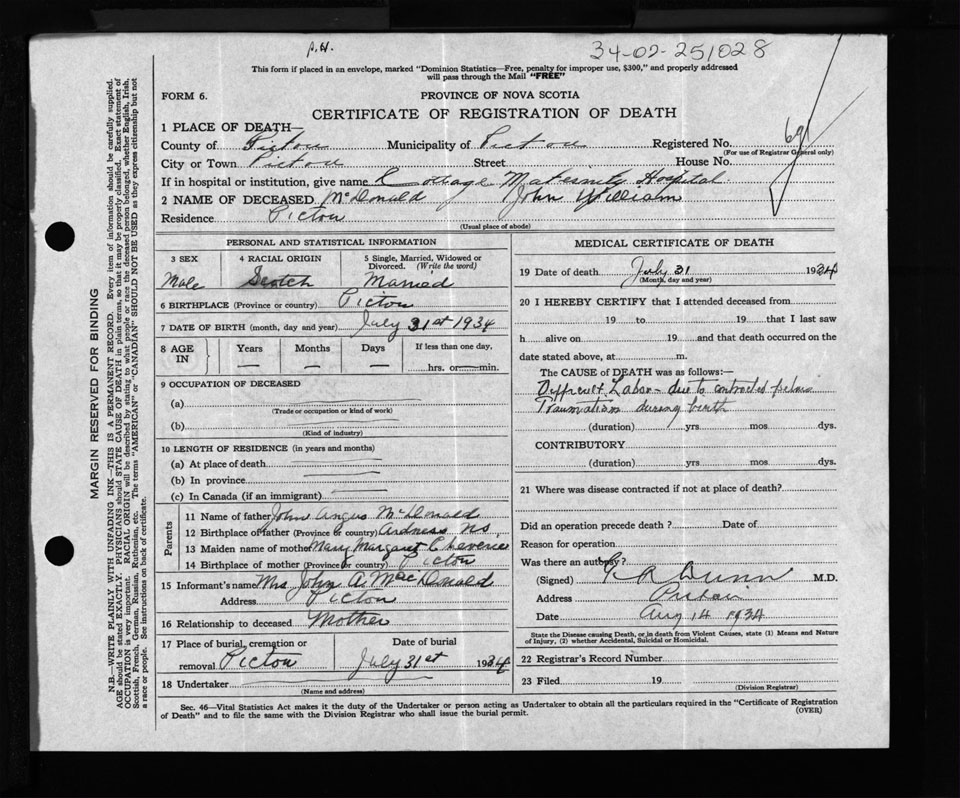 p.H.
34-02-251028
This form if placed in an envelope, marked "Dominion Statistics—Free, penalty for improper use, $300," and properly addressed
will pass through the Mail "FREE"
FORM 6.
PROVINCE OF NOVA SCOTIA
CERTIFICATE OF REGISTRATION OF DEATH
1 PLACE OF DEATH—
County of Pictou Municipality of Pictou Registered No. 691
(For use of Registrar General only)
City or Town Pictou Street House No.
If in hospital or institution, give name Cottage Maternity Hospital
2 NAME OF DECEASED McDonald John William
Residence Pictou
(Usual place of abode)
MARGIN RESERVED FOR BINDING
N.B.—WRITE PLAINLY WITH UNFADING INK—THIS IS A PERMANENT RECORD. Every item of information should be carefully supplied.
AGE should be stated EXACTLY. PHYSICIANS should STATE CAUSE OF DEATH in plain terms, so that it may be properly classified. Exact statement of
OCCUPATION is very important. RACIAL ORIGIN will be described by stating to what people or race the deceased person belonged, whether English, Irish,
Scottish, French, German, Russian, Ruthenian, etc. The terms "AMERICAN" or "CANADIAN" SHOULD NOT BE USED as they express citizenship but not
a race or people. See instructions on back of certificate.
PERSONAL AND STATISTICAL INFORMATION
3 SEX
Male
4 RACIAL ORIGIN
Scotch
5 Single, Married, Widowed or
Divorced. (Write the word)
Married
6 BIRTHPLACE (Province or country) Pictou
7 DATE OF BIRTH (month, day and year) July 31st 1934
8 AGE
IN
Years
—
Months
—
Days
—
If less than one day,
hrs. or min.
9 OCCUPATION OF DECEASED
(a)
(Trade or occupation or kind of work)
(b)
(Kind of industry)
10 LENGTH OF RESIDENCE (in years and months)
(a) At place of death
(b) In province
(c) In Canada (if an immigrant)
Parents
11 Name of father John Angus McDonald
12 Birthplace of father (Province or country) Ardness NS
13 Maiden name of mother Mary Margaret Cheverie
14 Birthplace of mother (Province or country) Pictou
15 Informant's name Mrs John A. MacDonald
Address Pictou
16 Relationship to deceased Mother
17 Place of burial, cremation or
removal Pictou
Date of burial
July 31st 1934
18 Undertaker
(Name and address)
MEDICAL CERTIFICATE OF DEATH
19 Date of death July 31 1934
(Month, day and year)
20 I HEREBY CERTIFY that I attended deceased from
19 to 19 that I last saw
h alive on 19 and that death occurred on the
date stated above, at m.
The CAUSE of DEATH was as follows:—
Difficult Labor - due to contracted pelvis
Traumatism during birth
(duration) yrs mos dys.
CONTRIBUTORY
(duration) yrs mos dys.
21 Where was disease contracted if not at place of death?
Did an operation precede death? Date of
Reason for operation
Was there an autopsy?
(Signed) G A Dunn M.D.
Address Pictou
Date Aug 14 1934
State the Disease causing Death, or in death from Violent Causes, state (1) Means and Nature
of Injury, (2) whether Accidental, Suicidal or Homicidal.
22 Registrar's Record Number
23 Filed 19
(Division Registrar)
Sec. 46—Vital Statistics Act makes it the duty of the Undertaker or person acting as Undertaker to obtain all the particulars required in the "Certificate of Registration
of Death" and to file the same with the Division Registrar who shall issue the burial permit.
(OVER)